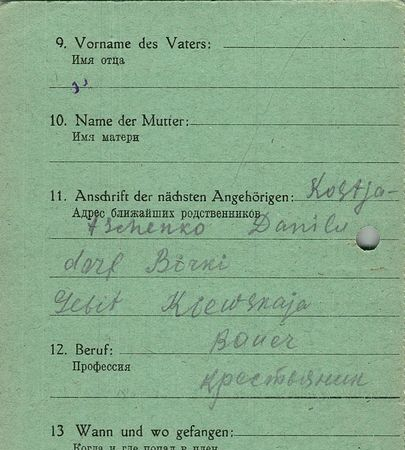 9. Vorname des Vaters:
Имя отца
10. Name der Mutter:
Имя матери
11. Anschrift der nächsten Angehörigen: Kostja-
Адрес ближайших родственников
tschenko Danilu
dorf Borki
Gebit Kiewskaja
12. Beruf: Bauer
Профессия крестьянин
13 Wann und wo gefangen:
Когда и где попал в плен